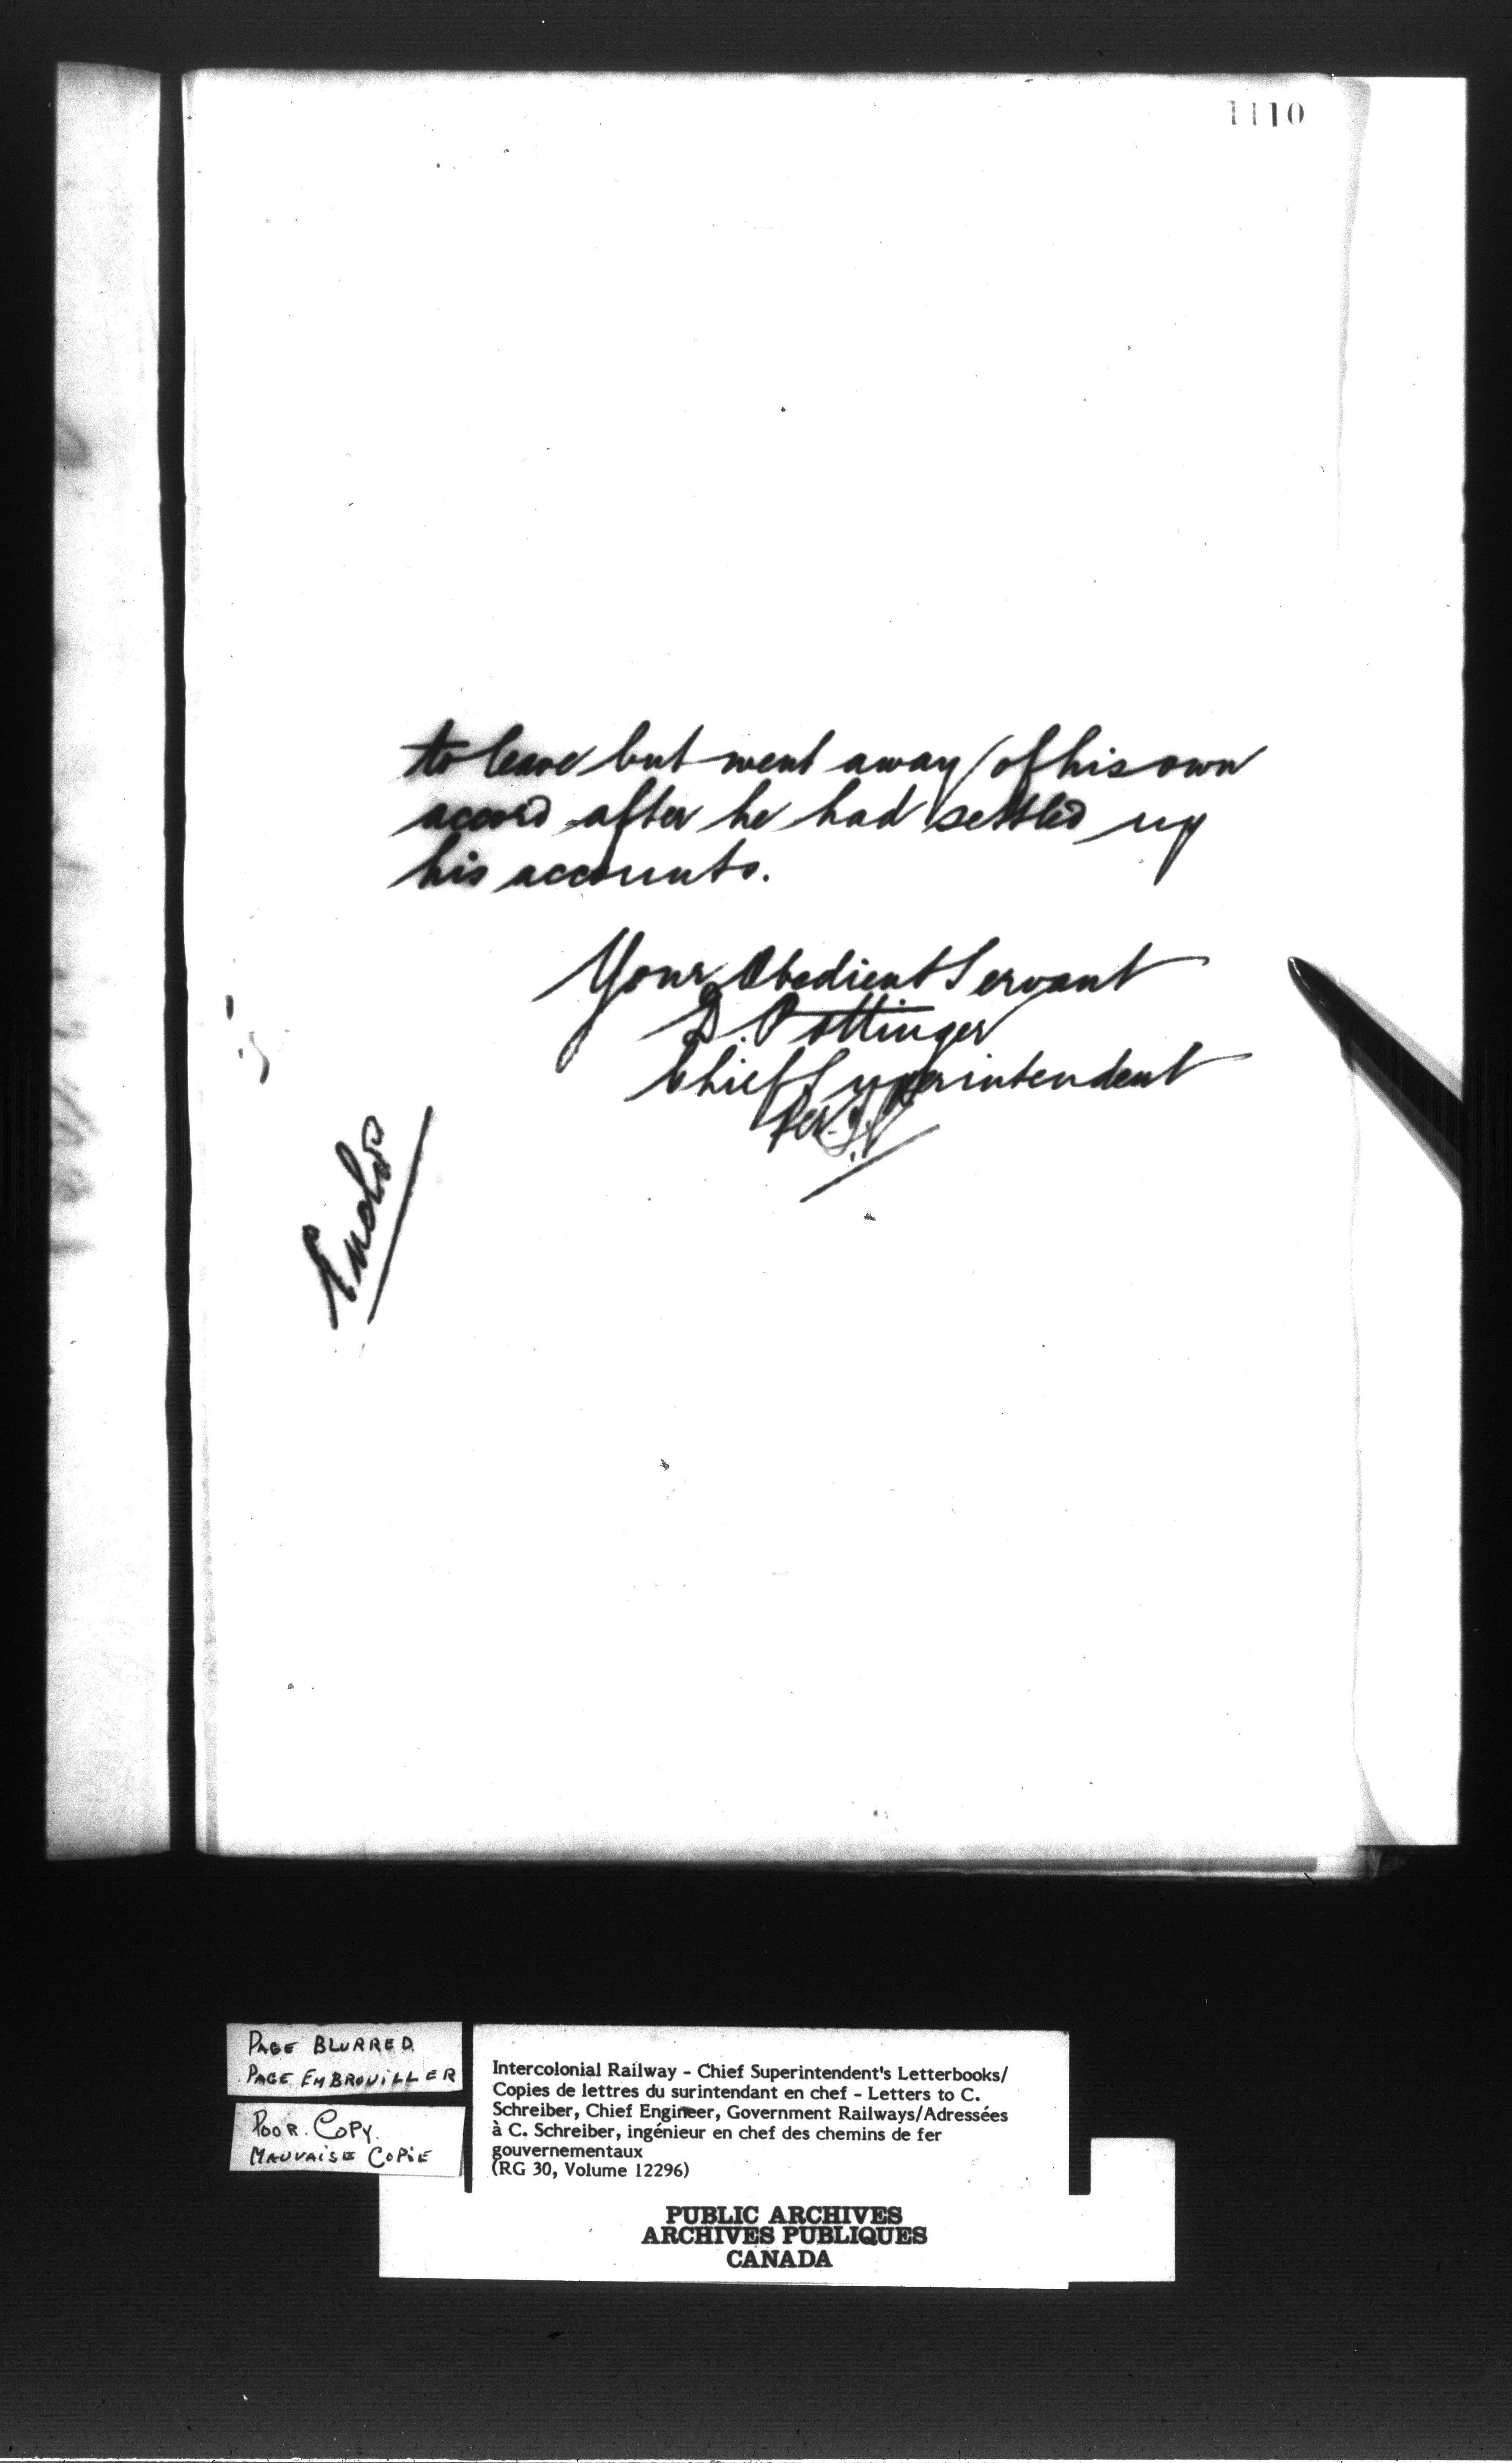 1110
to leave but went away of his own
accord after he had settled up
his accounts.
Your Obedient Servant
D. Pottinger
Chief Superintendent
Per
PAGE BLURRED
PAGE EMBROUILLER
POOR COPY.
MAUVAISE COPIE
Intercolonial Railway - Chief Superintendent's Letterbooks/
Copies de lettres du surintendant en chef - Letters to C.
Schreiber, Chief Engineer, Government Railways/Adressées
à C. Schreiber, ingénieur en chef des chemins de fer
gouvernementaux
(RG 30, Volume 12296)
PUBLIC ARCHIVES
ARCHIVES PUBLIQUES
CANADA